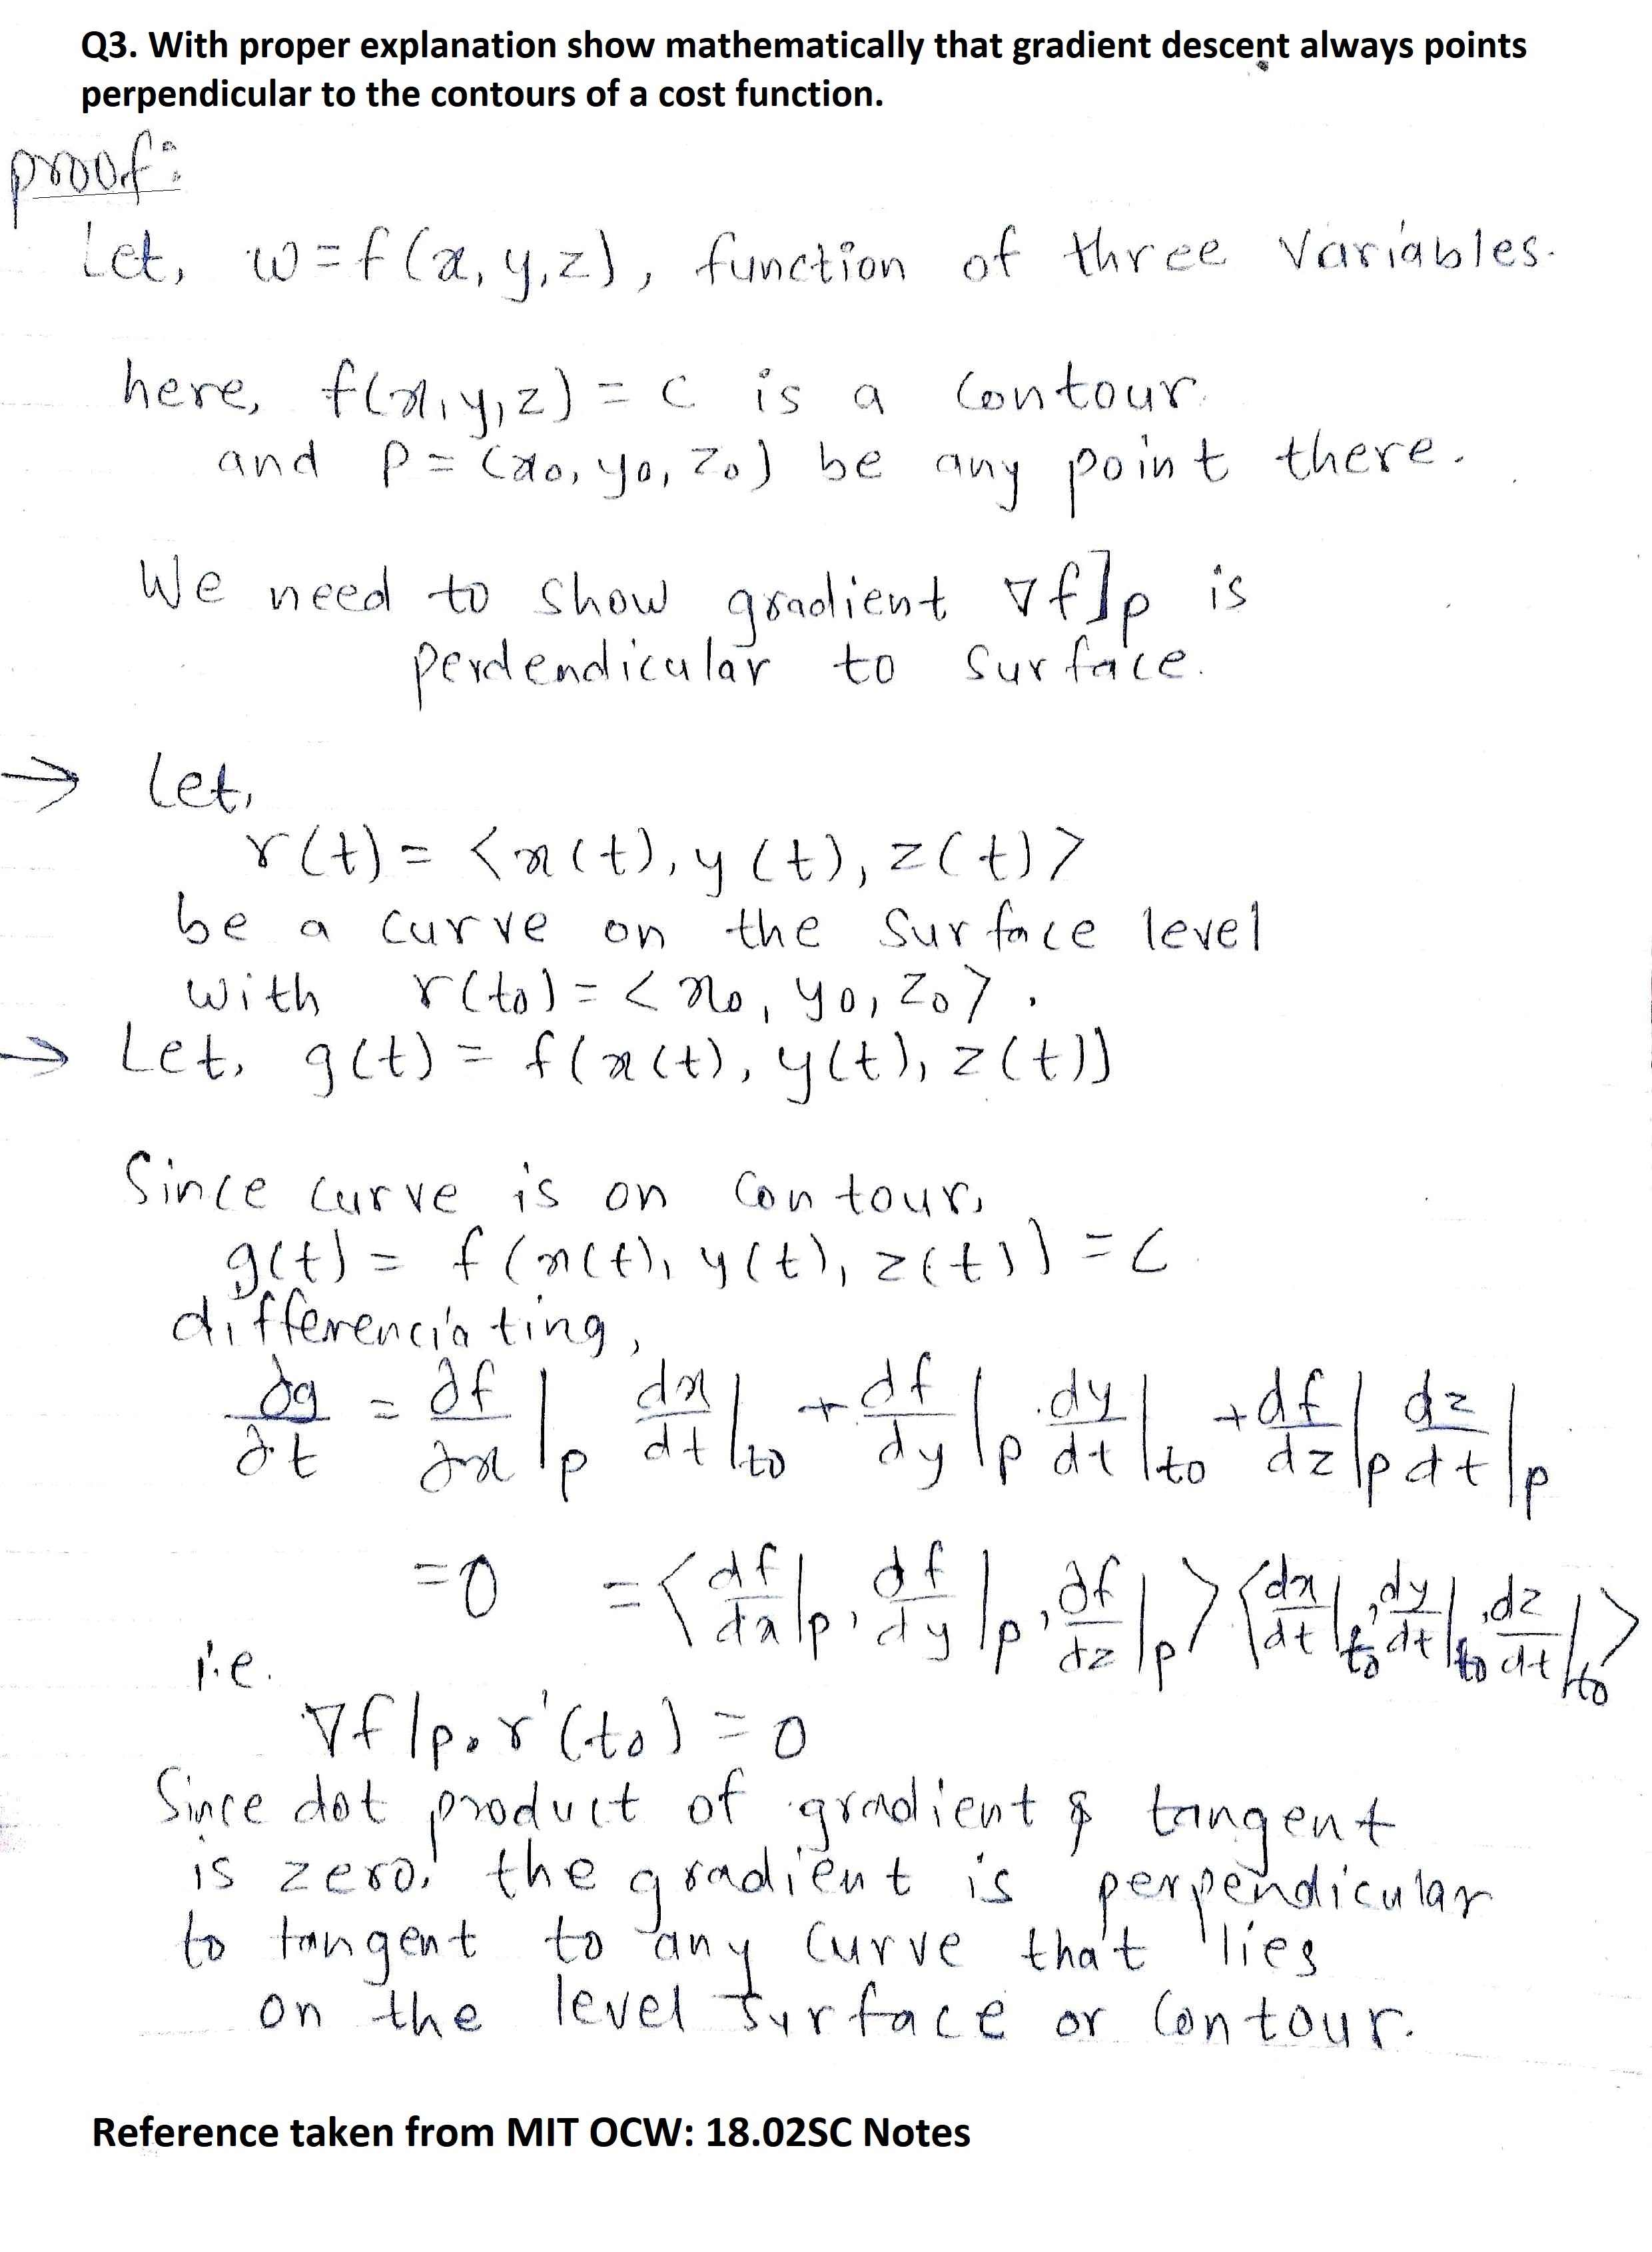 Q3. With proper explanation show mathematically that gradient descent always points
perpendicular to the contours of a cost function.
proof:
Let, w = f(x, y, z), function of three variables.
here, f(x, y, z) = c is a contour.
and P = (x₀, y₀, z₀) be any point there.
We need to show gradient ∇f]p is
perdendicular to surface.
→ Let,
r(t) = <x(t), y(t), z(t)>
be a curve on the surface level
with r(t₀) = <x₀, y₀, z₀>.
→ Let, g(t) = f(x(t), y(t), z(t))
Since curve is on contour,
g(t) = f(x(t), y(t), z(t)) = c
differenciating,
∂g/∂t = ∂f/∂x|p dx/dt|t₀ + df/dy|p . dy/dt|t₀ + df/dz|p dz/dt|p
= 0 = <df/dx|p, df/dy|p, ∂f/dz|p> <dx/dt|t₀, dy/dt|t₀, dz/dt|t₀>
i.e.
∇f|p . r'(t₀) = 0
Since dot product of gradient & tangent
is zero, the gradient is perpendicular
to tangent to any curve that lies
on the level surface or contour.
Reference taken from MIT OCW: 18.02SC Notes